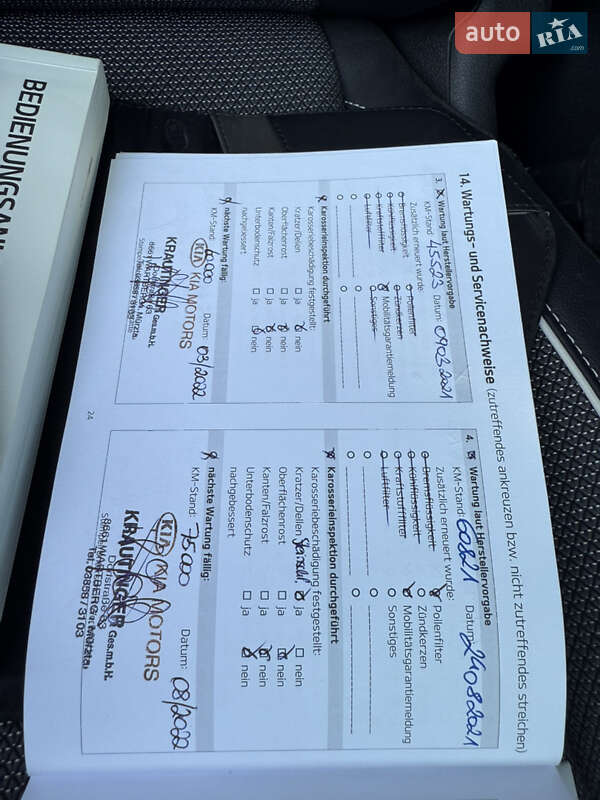 auto
RIA
.com
BEDIENUNGSANL
14. Wartungs- und Servicenachweise (zutreffendes ankreuzen bzw. nicht zutreffendes streichen)
3. Wartung laut Herstellervorgabe
KM-Stand: 45523 Datum: 09.03.2021
Zusätzlich erneuert wurde:
Bremsflüssigkeit
Pollenfilter
Kühlflüssigkeit
Zündkerzen
Kraftstofffilter
Mobilitätsgarantiemeldung
Luftfilter
Sonstiges
Karosserieinspektion durchgeführt
Karosseriebeschädigung festgestellt:
Kratzer/Dellen ja nein
Oberflächenrost ja nein
Kanten/Falzrost ja nein
Unterbodenschutz ja nein
nachgebessert
nächste Wartung fällig:
KM-Stand: Datum: 03/2022
KIA KIA MOTORS
KRAUTINGER
Ges.m.b.H.
24
4. Wartung laut Herstellervorgabe
KM-Stand: 60821 Datum: 24.08.2021
Zusätzlich erneuert wurde:
Bremsflüssigkeit
Pollenfilter
Kühlflüssigkeit
Zündkerzen
Kraftstofffilter
Mobilitätsgarantiemeldung
Luftfilter
Sonstiges
Karosserieinspektion durchgeführt
Karosseriebeschädigung festgestellt:
Kratzer/Dellen ja nein
Oberflächenrost ja nein
Kanten/Falzrost ja nein
Unterbodenschutz ja nein
nachgebessert
nächste Wartung fällig:
KM-Stand: 75000 Datum: 08/2022
KIA KIA MOTORS
KRAUTINGER Ges.m.b.H.
8661 WARTBERG